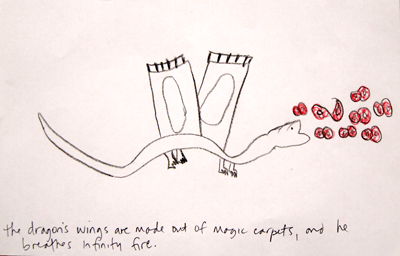 the dragon's wings are made out of magic carpets, and he
breathes infinity fire.